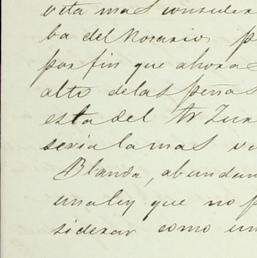 vita mas consider
ba del Rosario, p
por fin que ahora s
alto de las peñas
esta del Sr Zur
seria la mas v
Blanda, abundan
una ley que no p
siderar como un